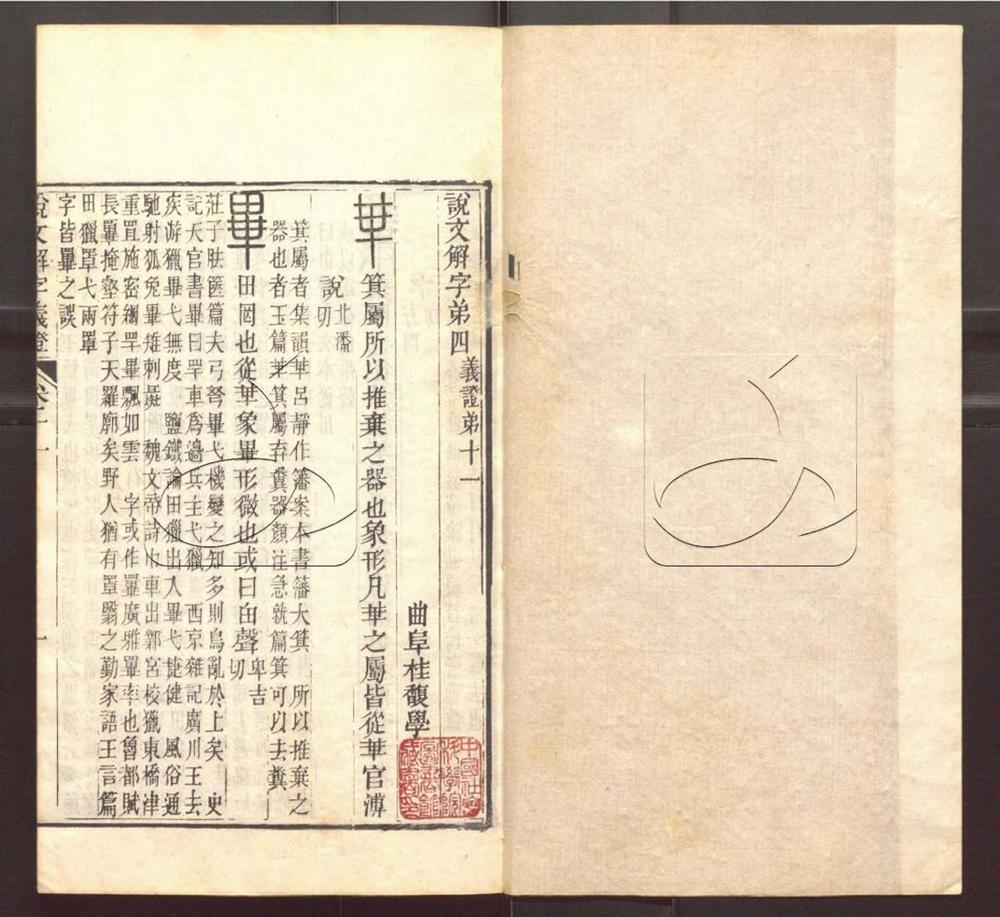 說文解字弟四 義證弟十一
曲阜桂馥學
𠦒 箕屬所以推棄之器也象形凡𠦒之屬皆從𠦒官溥
說 北潘切
箕屬者集韻𠦒呂靜作籓案本書籓大箕 所以推棄之
器也者玉篇𠦒箕屬弃糞器顏注急就篇箕可以去糞
畢 田罔也從𠦒象畢形微也或曰甶聲 卑吉切
莊子胠篋篇夫弓弩畢弋機變之知多則鳥亂於上矣 史
記天官書畢曰罕車爲邊兵主弋獵 西京雜記廣川王去
疾游獵畢弋無度 鹽鐵論田獵出入畢弋捷健 風俗通
馳射狐兔畢雉刺 魏文帝詩巾車出鄴宮校獵東橋津
重罝施密網罕畢飄如雲 字或作罼廣雅罼率也魯都賦
長罼掩壑符子天羅廓矣野人猶有罩翳之勤家語王言篇
田獵罩弋兩罩
字皆罼之誤
說文解字義證 卷十一 一